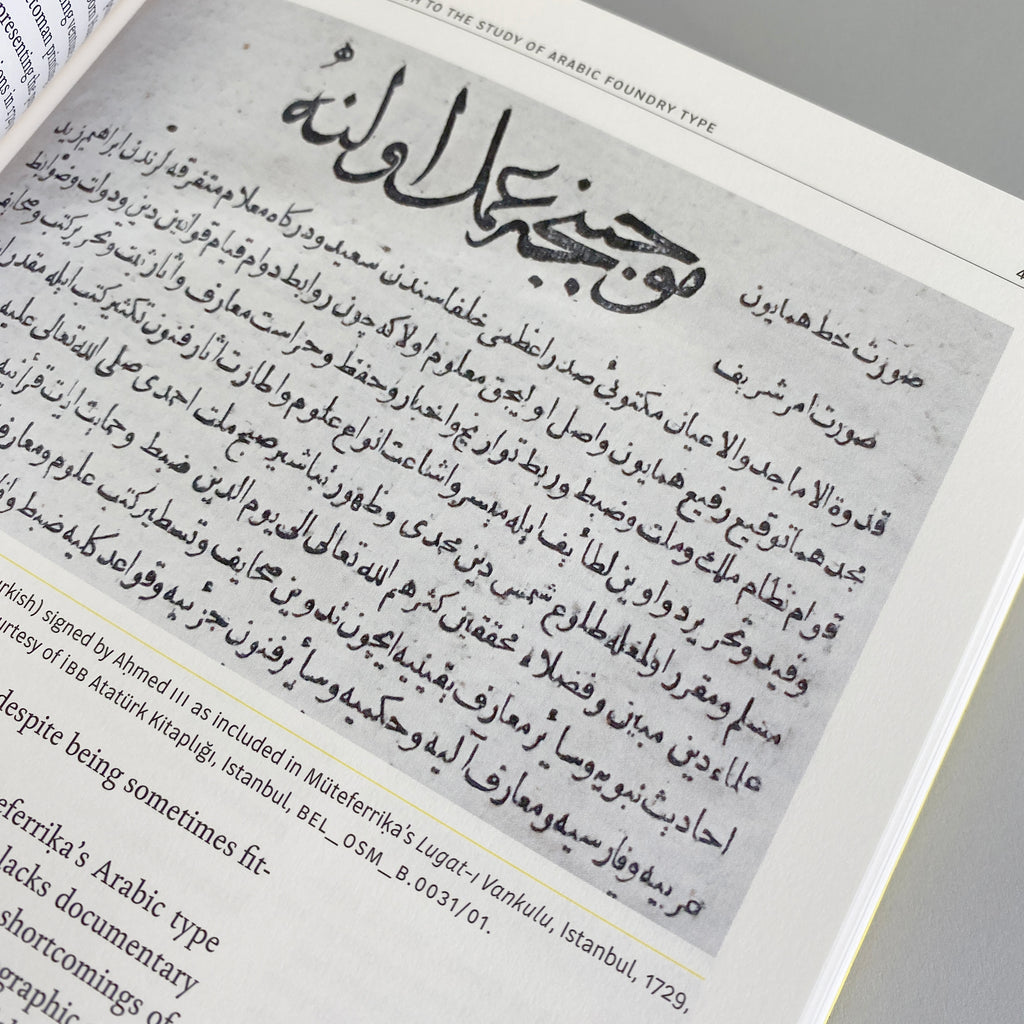 TO THE STUDY OF ARABIC FOUNDRY TYPE
موجبنجه عمل اولنه
صورت خط همايون
صورت امر شريف
قدوة الاماجد والاعيان مكتوبئ صدر اعظمى خلفاسندن سعيد ودركاه معلام متفرقه لرندن ابراهيم زيد
مجدهما توقيع رفيع همايون واصل اوليجق معلوم اولا كه چون روابط دوام قيام قوانين دين ودولت وضوابط
قوام نظام ملك وملت وضبط وربط تواريخ واخبار وحفظ وحراست معارف وآثار ثبت وتحرير كتب وصحايف
وقيد وتحرير دواوين لطائف ايله ميسر واشاعت انواع علوم واطارت آثار فنون تكثير كتب ايله
مسلم ومقرر اولمغله طلوع شمس دين محمدى وظهور تباشير صبح ملت احمدى صلى الله تعالى عليه
علماء دين مبين وفضلاء محققين كثرهم الله تعالى الى يوم الدين ضبط وحمايت آيات قرآنيه
احاديث نبويه وسائر معارف يقينيه ايچون تدوين صحايف وتسطير كتب علوم ومعارف
عربيه وفارسيه ومعارف آليه وحكميه وسائر فنون جزئيه وقواعد كليه ضبط
signed by Aḥmed III as included in Müteferriḳa’s Lugat-ı Vankulu, Istanbul, 1729,
of İBB Atatürk Kitaplığı, Istanbul, BEL_OSM_B.0031/01.
despite being sometimes fit-
Arabic type
lacks documentary
shortcomings of